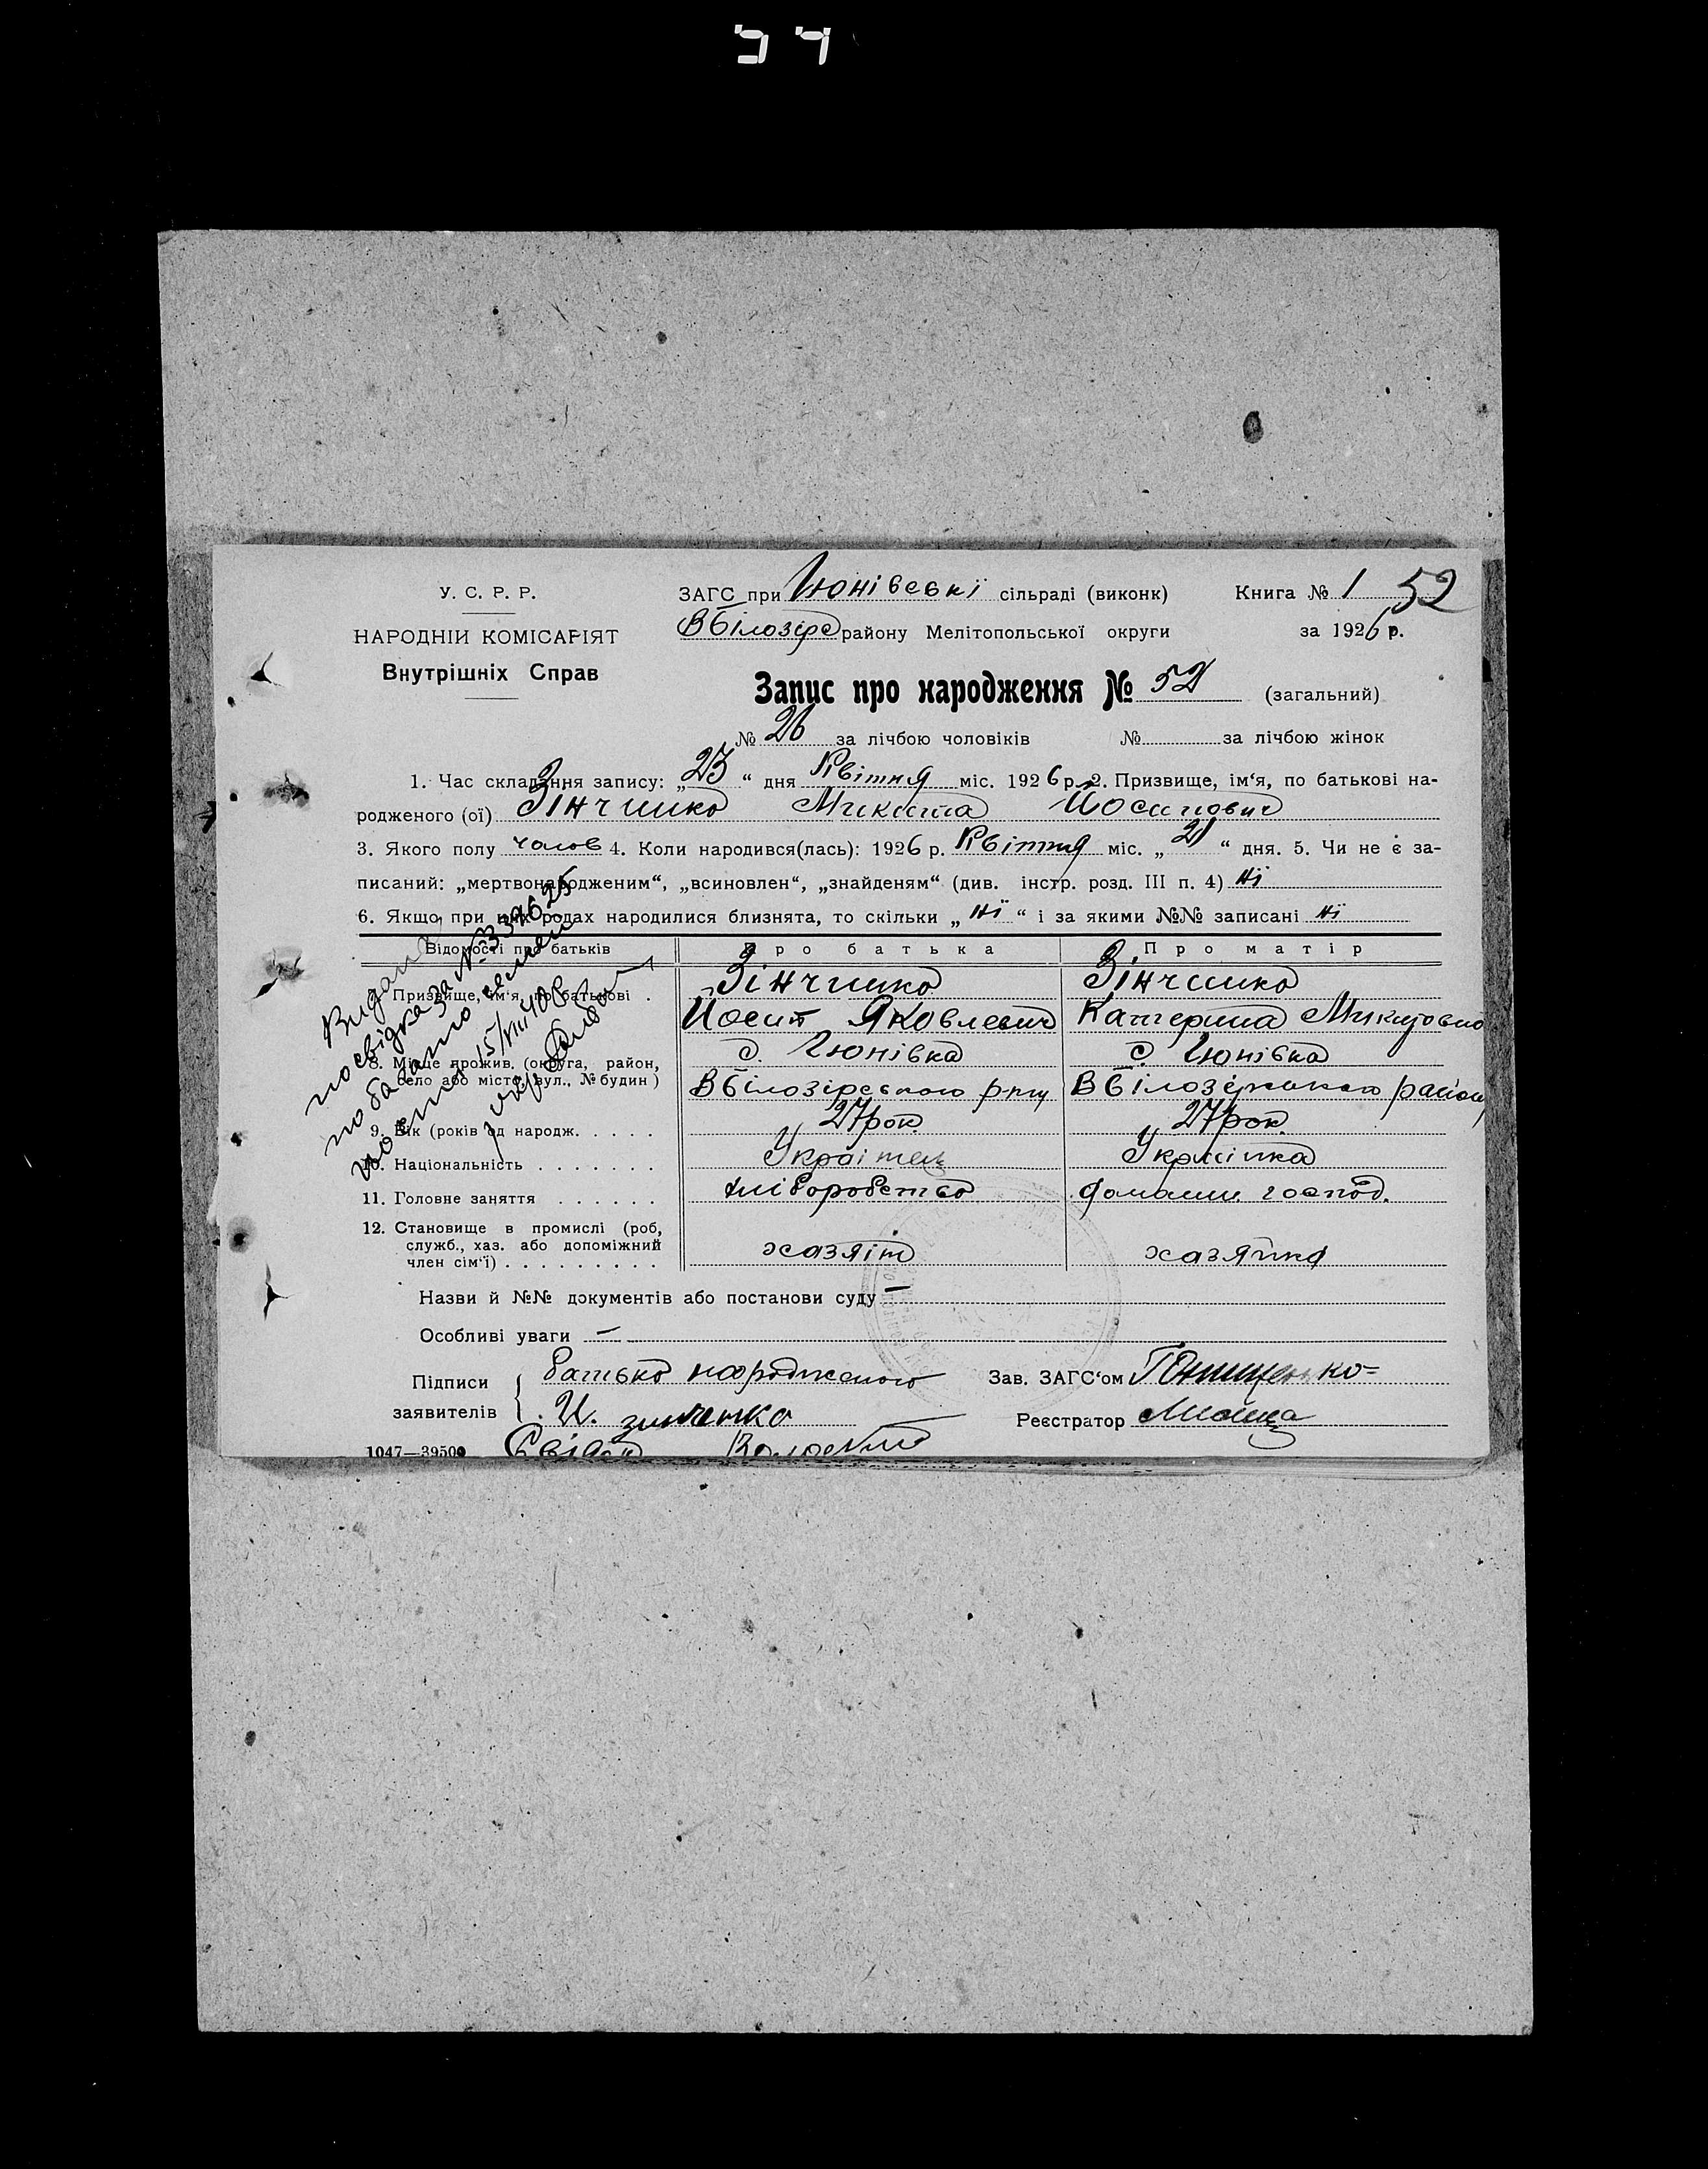 У. С. Р. Р.
НАРОДНІЙ КОМІСАРІЯТ
Внутрішніх Справ
ЗАГС при Гюнівські сільраді (виконк) Книга № 1 52
Вбілозірс району Мелітопольської округи за 1926 р.
Запис про народження № 52 (загальний)
№ 26 за лічбою чоловіків № за лічбою жінок
1. Час складання запису: „23“ дня Квітня міс. 1926 р. 2. Призвище, ім‘я, по батькові на-
родженого (ої) Зінченко Микита Йосипович
3. Якого полу чолов 4. Коли народився(лась): 1926 р. Квітня міс. „21“ дня. 5. Чи не є за-
писаний: „мертвонародженим“, „всиновлен“, „знайденям“ (див. інстр. розд. III п. 4) ні
6. Якщо при цих родах народилися близнята, то скільки „ні“ і за якими №№ записані ні
Відомості про батьків Про батька Про матір
Призвище, ім‘я, по батькові . Зінченко Зінченко
Йосип Яковлевич Катерина Микитовно
8. Місце прожив. (округа, район, с. Гюнівка с. Гюнівка
село або місто, вул., № будин) Вбілозірського р-ну Вбілозірського району
9. Вік (років од народж. . . . . 27 рок. 27 рок.
10. Національність . . . . . . . Українец Українка
11. Головне заняття . . . . . . хліборобство домашн господ.
12. Становище в промислі (роб,
служб., хаз. або допоміжний хазяїн хазяйка
член сім‘ї) . . . . . . . . .
Видана
посвідка за № 337625
15/VIII 40
Назви й №№ документів або постанови суду —
Особливі уваги —
Підписи батько народженого Зав. ЗАГС‘ом
заявителів И. зинченко Реєстратор
1047—39500